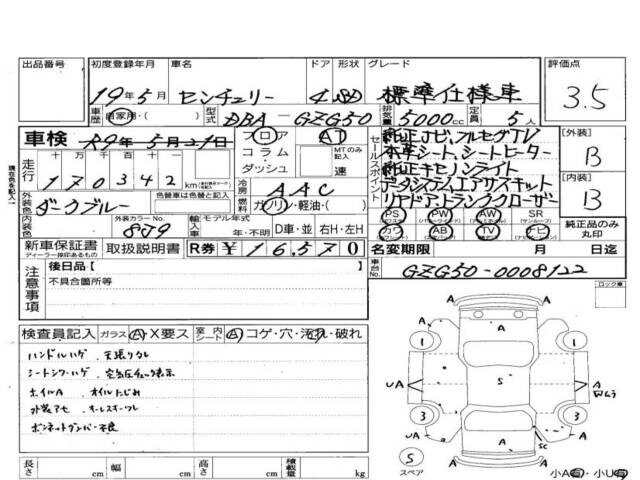 出品番号 初度登録年月 車名 ドア 形状 グレード 評価点
19年5月 センチュリー 4 SD 標準仕様車 3.5
車歴 自家用・( ) 型式 DBA-GZG50 排気量 5000cc 定員 5人
車検 R9年5月21日 フロア AT
コラム MTのみ記入
ダッシュ 速
走行 十万千百十一
170342 km
セールスポイント
純正ナビ、フルセグTV
本革シート、シートヒーター
純正キセノンライト
リヤドア、トランククローザー
[外装] B
[内装] B
外装色 ダークブルー
色替車は色替と記入
冷房 AAC
燃料 ガソリン・軽油・( )
内装色 外装カラーNo. 8J9
輸入車 モデル年式 年・不明 D車・並 右H・左H
PS PW AW SR
カワ AB TV ナビ
純正品のみ丸印
新車保証書 取扱説明書 R券 ¥16,570
ディーラー捺印あるもの
名変期限 月 日迄
車台No. GZG50-0008122
注意事項
後日品【 】
不具合箇所等
ロック車
検査員記入 ガラス A・X要ス 室内シート A コゲ・穴・汚れ・破れ
ハンドルハゲ 天張りカレ
シートシワ・ハゲ 空気圧チェック表示
ホイルA オイルにじみ
外装アセ
ボンネットダンパー不良
A
A
A
UA
S
A
3
3
3
3
UA
A
A
SC
A
S
スペア
小A有・小U有
長さ cm 幅 cm 高さ cm 積載量 kg
現在色を記入